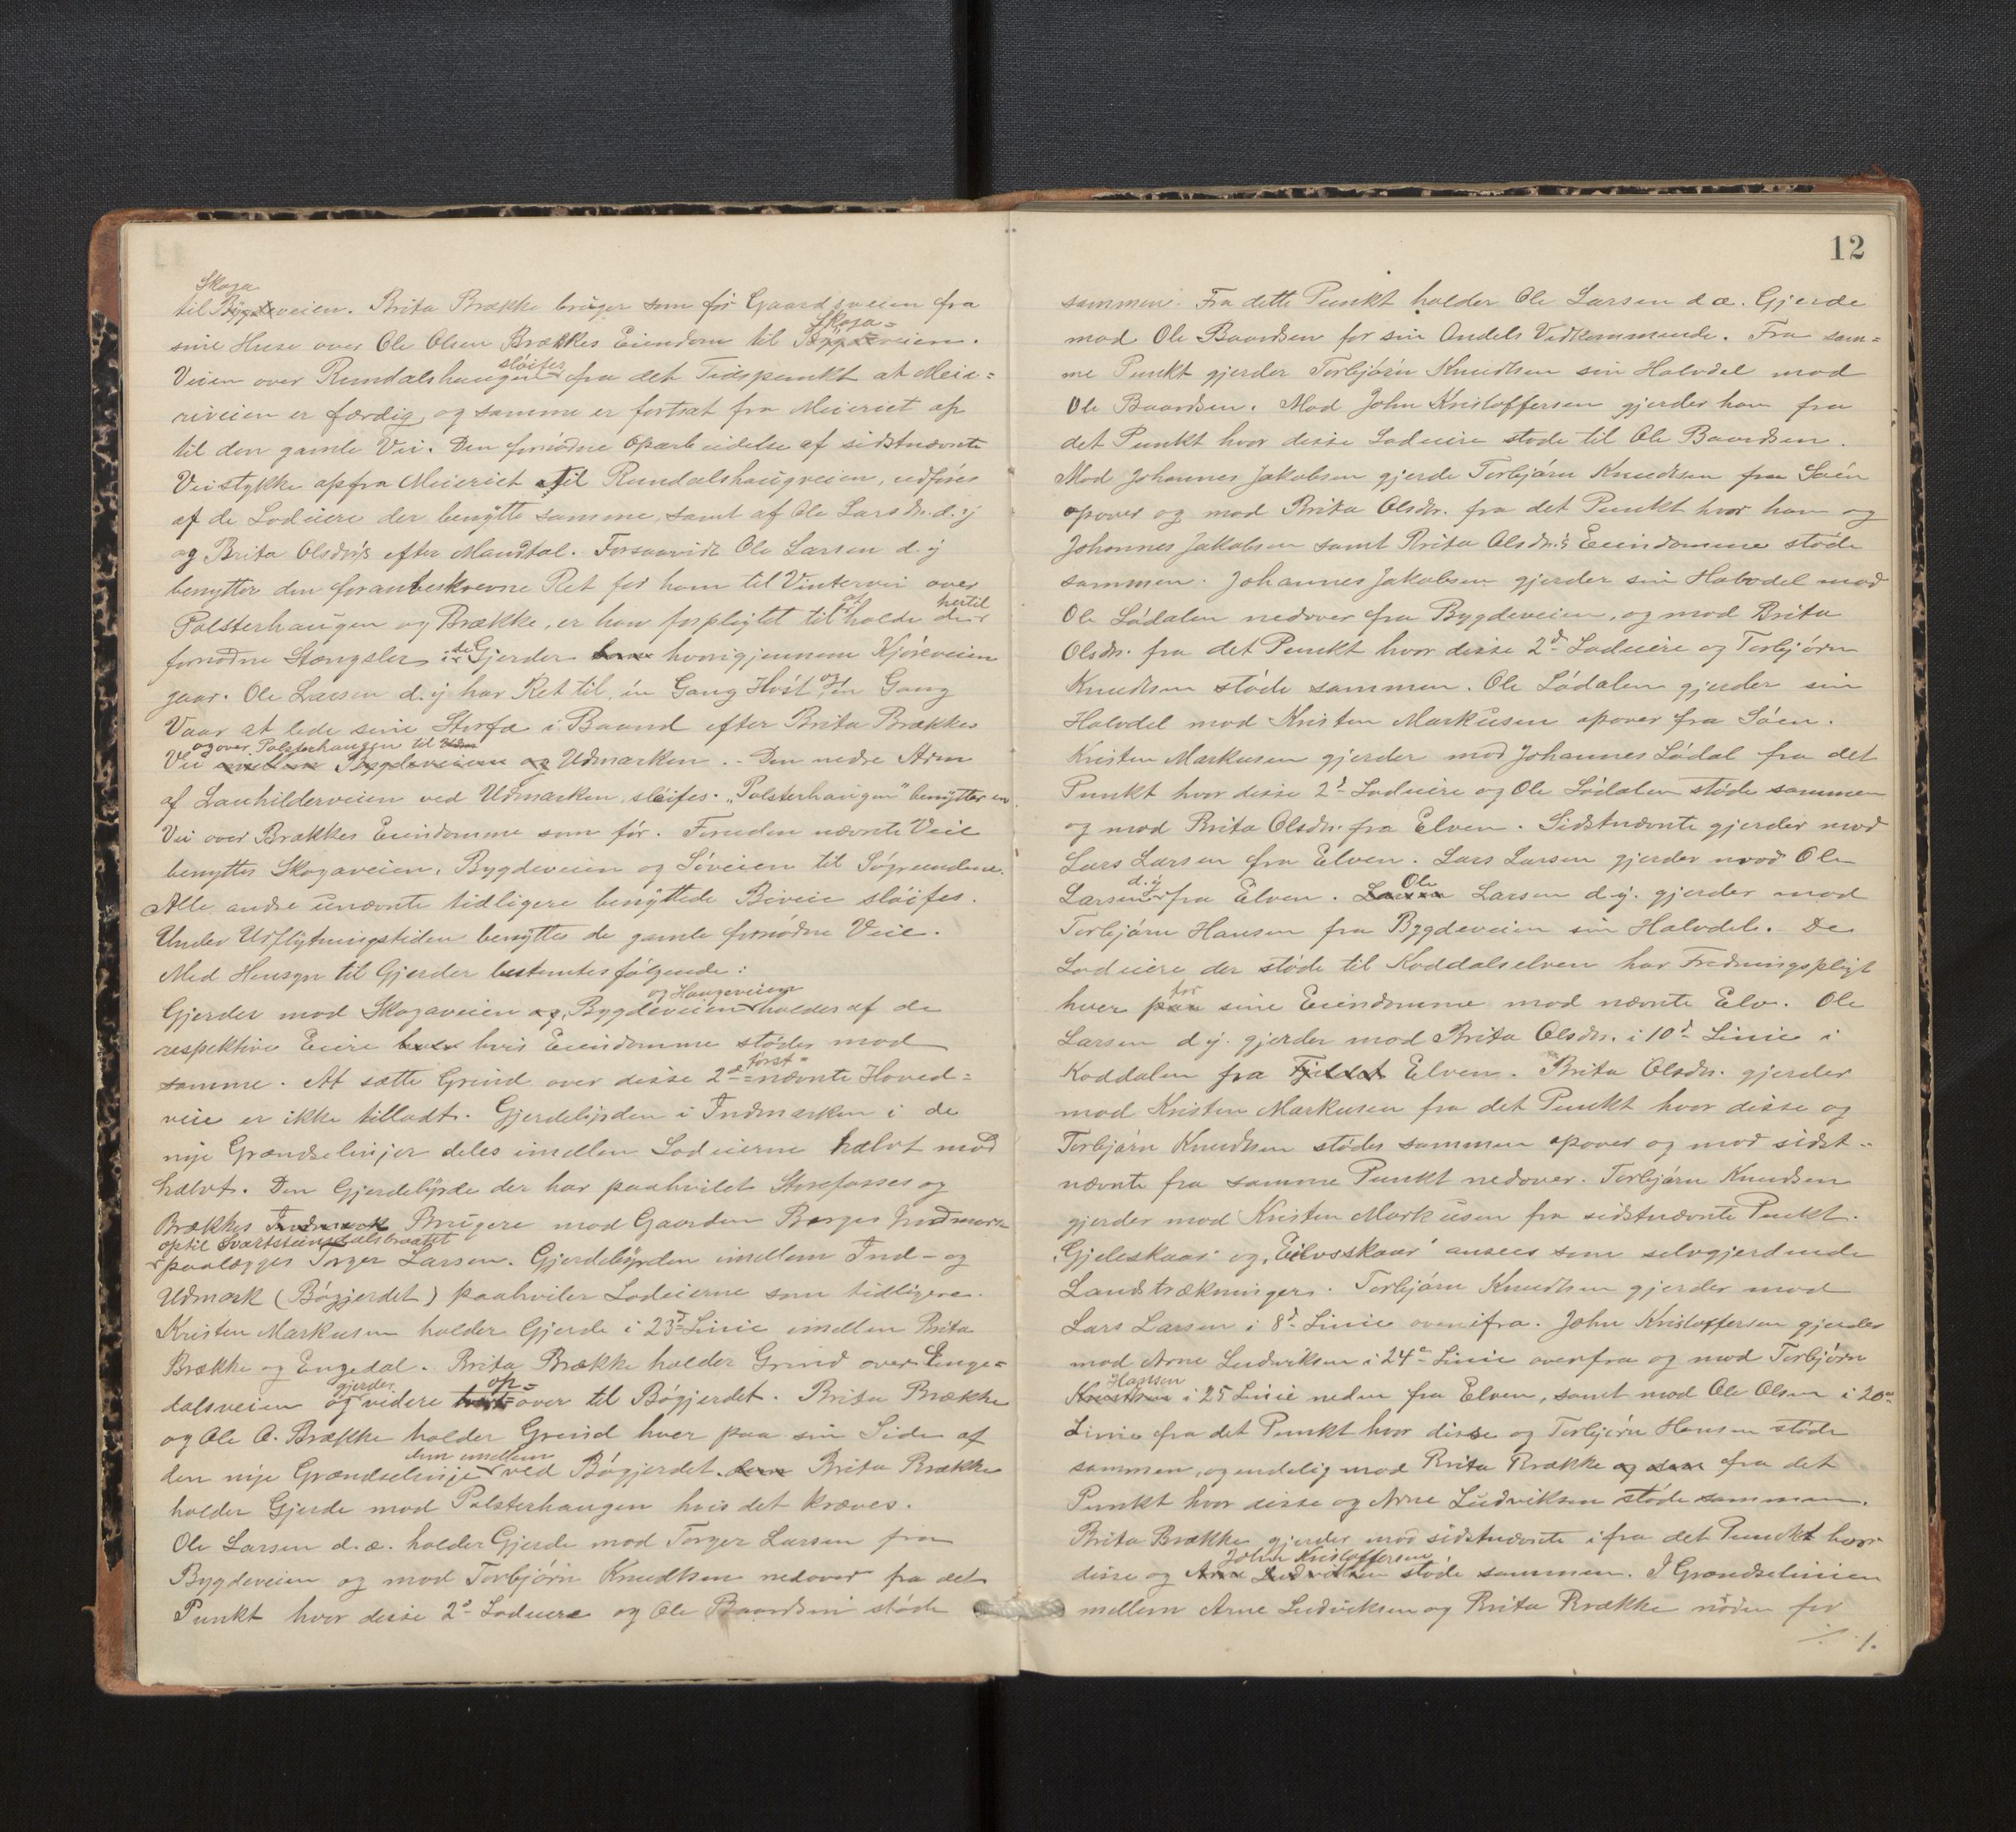 Skoga
til Bygdeveien. Brita Brække bruger som før Gaardsveien fra
Skoga=
sine Huse over Ole Olsen Brækkes Eiendom til Bygdeveien.
sløifes
Veien over Rundalshaugen fra det Tidspunkt at Meie=
riveien er færdig, og samme er fortsat fra Meieriet op
til den gamle Vei. Den fornødne Oparbeidelse af sidstnævnte
Veistykke opfra Meieriet til Rundalshaugveien, udføres
af de Lodeiere der benytte samme, samt af Ole Larsen d. y
og Brita Olsdr's efter Mandtal. Forsaavidt Ole Larsen d. y
benytter den foranbeskrevne Ret for ham til Vintervei over
at hertil
Polsterhaugen og Brække, er han forpligtet til holde der
fornødne Stængsler i de Gjerder hvorigjennem Kjøreveien
gaar. Ole Larsen d. y har Ret til, én Gang Høst og én Gang
Vaar at lede sine Storfæ i Baand efter Brita Brækkes
og over Polsterhaugen til Udm
Vei mellem Bygdeveien og Udmarken. - Den nedre Arm
af Lauhilderveien ved Udmarken, sløifes. "Polsterhaugen" benytter en
Vei over Brækkes Eiendomme som før. Foruden nævnte Veie
benyttes Skogaveien, Bygdeveien og Søveien til Søgrundene.
Alle andre unævnte tidligere benyttede Biveie sløifes.
Under Udflytningstiden benyttes de gamle fornødne Veie.
Med Hensyn til Gjerder bestemtes følgende:
og Haugeveien
Gjerder mod Skogaveien og Bygdeveien holdes af de
respektive Eiere hvis Eiendomme støder mod
først=
samme. At sætte Grind over disse 2de =nævnte Hoved=
veie er ikke tilladt. Gjerdebyrden i Indmarken i de
nye Grændselinjer deles imellem Lodeierne halvt mod
halvt. Den Gjerdebyrde der har paahvilet Storefosses og
Brækkes Indmark Brugere mod Gaarden Berges Indmark
optil Svartsteinsdalsbraatet
paalægges Torger Larsen. Gjerdebyrden imellem Ind- og
Udmark (Bøgjerdet) paahviler Lodeierne som tidligere.
Kristen Markusen holder Gjerde i 23d Linie imellem Brita
Brække og Engedal. Brita Brække holder Grind over Enge=
gjerder op=
dalsveien og videre over til Bøgjerdet. Brita Brække
og Ole O. Brække holder Grind hver paa sin Side af
dem imellem
den nye Grændselinje ved Bøgjerdet. Brita Brække
holder Gjerde mod Polsterhaugen hvis det kræves.
Ole Larsen d. æ. holder Gjerde mod Torger Larsen fra
Bygdeveien og mod Torbjørn Knudtsen nedover fra det
Punkt hvor disse 2de Lodeiere og Ole Baardsen støde
12
sammen. Fra dette Punkt holder Ole Larsen d æ. Gjerde
mod Ole Baardsen for sin Andels Vedkommende. Fra sam=
me Punkt gjerder Torbjørn Knudtsen sin Halvdel mod
Ole Baardsen. Mod John Kristoffersen gjerder han fra
det Punkt hvor disse Lodeiere støde til Ole Baardsen.
Mod Johannes Jakobsen gjerde Torbjørn Knudtsen fra Søen
opover og mod Brita Olsdr. fra det Punkt hvor han og
Johannes Jakobsen samt Brita Olsdr.'s Eiendomme støde
sammen. Johannes Jakobsen gjerder sin Halvdel mod
Ole Lødalen nedover fra Bygdeveien, og mod Brita
Olsdr. fra det Punkt hvor disse 2de Lodeiere og Torbjørn
Knudtsen støde sammen. Ole Lødalen gjerder sin
Halvdel mod Kristen Markusen opover fra Søen.
Kristen Markusen gjerder mod Johannes Lødal fra det
Punkt hvor disse 2de Lodeiere og Ole Lødalen støde sammen
og mod Brita Olsdr. fra Elven. Sidstnævnte gjerder mod
Lars Larsen fra Elven. Lars Larsen gjerder mod Ole
d. y Ole
Larsen fra Elven. Larsen Larsen d. y. gjerder mod
Torbjørn Hansen fra Bygdeveien sin Halvdel. De
Lodeiere der støde til Koddalselven har Fredningspligt
for
hver paa sine Eiendomme mod nævnte Elv. Ole
Larsen d y. gjerder mod Brita Olsdr. i 10d Linie i
Koddalen fra Fjeldet Elven. Brita Olsdr. gjerder
mod Kristen Markusen fra det Punkt hvor disse og
Torbjørn Knudtsen støder sammen opover og mod sidst=
nævnte fra samme Punkt nedover. Torbjørn Knudsen
gjerder mod Kristen Markusen fra sidstnævnte Punkt.
"Gjeleskaar" og "Eilvsskaar" ansees som selvgjerdende
Landstrækninger. Torbjørn Knudtsen gjerder mod
Lars Larsen i 8d Linie ovenifra. John Kristoffersen gjerder
mod Arne Ludviksen i 24de Linie ovenfra og mod Torbjørn
Hansen
Knudtsen i 25 Linie neden fra Elven, samt mod Ole Olsen i 20de
Linie fra det Punkt hvor disse og Torbjørn Hansen støde
sammen, og endelig mod Brita Brække og den fra det
Punkt hvor disse og Arne Ludviksen støde sammen.
Brita Brække gjerder mod sidstnævnte ifra det Punkt hvor
John Kristoffersen
disse og Arne Ludviksen støde sammen. I Grændselinien
mellem Arne Ludviksen og Brita Brække nøden for
./.